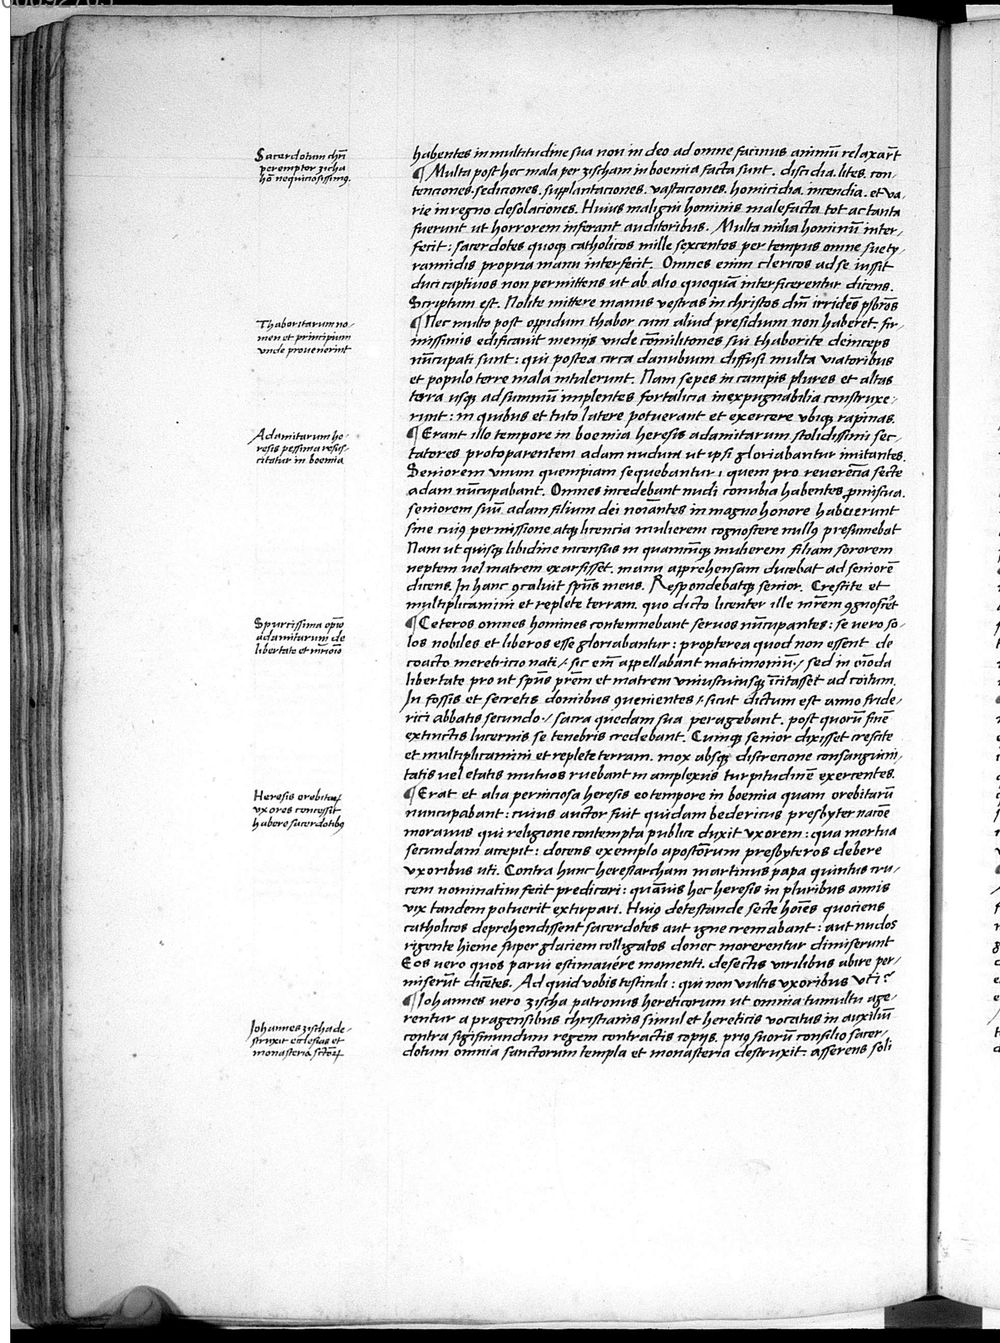 Sacerdotum dn̄i
peremptor zicha
hō nequiciosissimꝰ.
habentes in multitudine sua non in deo ad omne facinus animū relaxar̄t
¶ Multa post hec mala per zischam in boemia facta sunt. discidia. lites. con-
tenciones. sediciones. supplantaciones. vastaciones. homicidia. incendia. et va-
rie in regno desolaciones. Huius maligni hominis malefacta tot ac tanta
fuerunt ut horrorem inferant auditoribus. Multa milia hominū inter-
fecit: sacerdotes quoqꝫ catholicos mille sexcentos per tempus omne sue ty-
rannidis propria manu interfecit. Omnes enim clericos ad se iussit
duci captiuos non permittens ut ab alio quoquā interficerentur dicens.
Scriptum est. Nolite mittere manus vestras in christos dn̄i irridēs p̄sbr̄os
Thaboritarum no-
men et principium
vnde prouenerint
¶ Nec multo post oppidum thabor cum aliud presidium non haberet. fir-
missimis edificauit menijs vnde cōmilitones sui thaborite deinceps
nūcupati sunt: qui postea circa danubium diffusi multa viatoribus
et populo terre mala intulerunt. Nam sepes in campis plures et altas
terra usqꝫ ad summū implentes fortalicia inexpugnabilia construxe-
runt: in quibus et tuto latere potuerant et exercere vbiqꝫ rapinas.
Adamitarum he-
resis pessima resus-
citatur in boemia
¶ Erant illo tempore in boemia heresis adamitarum stolidissimi sec-
tatores protoparentem adam nudum ut ipsi gloriabantur imitantes.
Seniorem vnum quempiam sequebantur, quem pro reuerēcia secte
adam nūcupabant. Omnes incedebant nudi conubia habentes ꝓmiscua.
seniorem suū adam filium dei noīantes in magno honore habuerunt
sine cuiꝰ permissione atqꝫ licencia mulierem cognoscere nullꝰ presumebat
Nam ut quisqꝫ libidine incensus in quamcūqꝫ mulierem filiam sororem
neptem uel matrem exarsisset. manu apprehensam ducebat ad seniorē
dicens. In hanc ꝯcaluit sp̄us meus. Respondebatqꝫ senior. Crescite et
multiplicamini et replete terram. quo dicto licenter ille mr̄em ꝯgnoscēt
Spurcissima opīo
adamitarum de
libertate et mr̄ioīo
¶ Ceteros omnes homines contemnebant seruos nūcupantes: se uero so-
los nobiles et liberos esse gloriabantur: propterea quod non essent de
coacto meretricio nati / sic em̄ appellabant matrimoniū / sed in om̄oda
libertate pro ut sp̄us pr̄em et matrem vniuscuiusqꝫ īcitasset ad coitum.
In fossis et secretis domibus ꝯuenientes / sicut dictum est anno fride-
rici abbatis secundo / sacra quedam sua peragebant. post quorū finē
extinctis lucernis se tenebris credebant. Cumqꝫ senior dixisset crescite
et multiplicamini et replete terram. mox absqꝫ discrecione consanguini-
tatis uel etatis mutuos ruebant in amplexus turpitudinē exercentes.
Heresis orebitaꝝ
vxores concessit
habere sacerdotibꝰ
¶ Erat et alia perniciosa heresis eo tempore in boemia quam orebitarū
nuncupabant: cuius auctor fuit quidam bedericus presbyter nacōe
morauus qui religione contempta publice duxit vxorem: qua mortua
secundam accepit: docens exemplo apostōrum presbyteros debere
vxoribus uti. Contra hunc heresiarcham martinus papa quintus cru-
cem nominatim fecit predicari: quāuis hec heresis in pluribus annis
vix tandem potuerit extirpari. Huiꝰ detestande secte hoīes quociens
catholicos deprehendissent sacerdotes aut igne cremabant: aut nudos
rigente hieme super glaciem colligatos donec morerentur dimiserunt
Eos uero quos parui estimauēre momenti. desectis virilibus abire per-
miserūt dicētes. Ad quid vobis testiculi: qui non vultis vxoribus uti?
¶ Johannes uero zischa patronus hereticorum ut omnia tumultu age-
rentur a pragensibus christianis simul et hereticis vocatus in auxiliū
Johannes zischa de-
struxit ecclesias et
monasteria sctōꝝ
contra sigismundum regem contractis copijs. priꝰ suorū consilio sacer-
dotum omnia sanctorum templa et monasteria destruxit. asserens soli